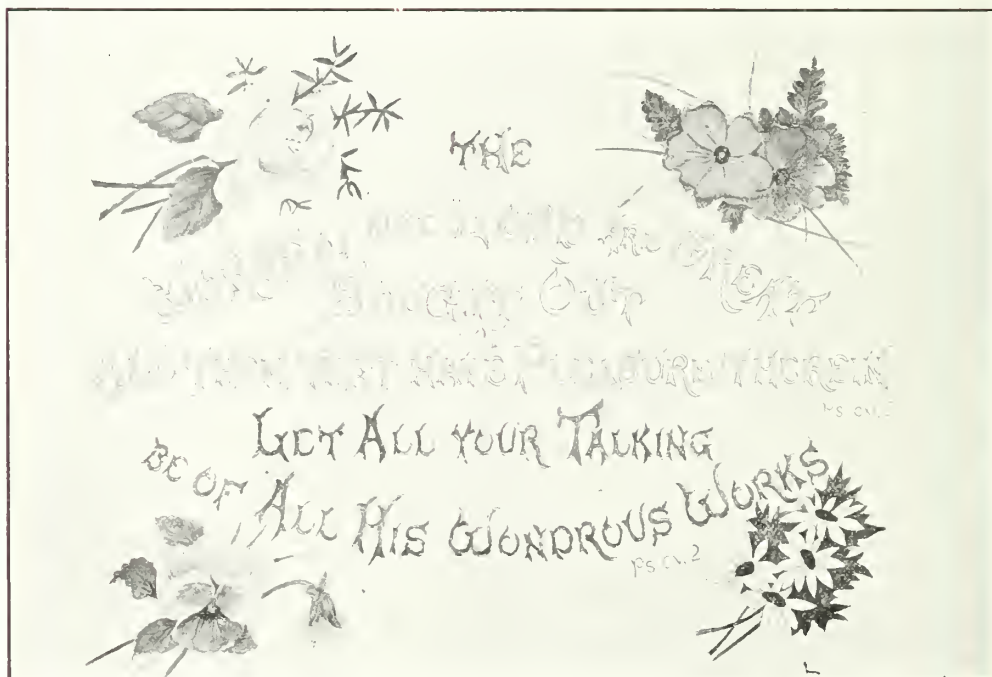 THE
ARE GREAT
SOUGHT OUT
ALL THEM THAT HAVE PLEASURE THEREIN
LET ALL YOUR TALKING
BE OF ALL HIS WONDROUS WORKS
PS CV.2